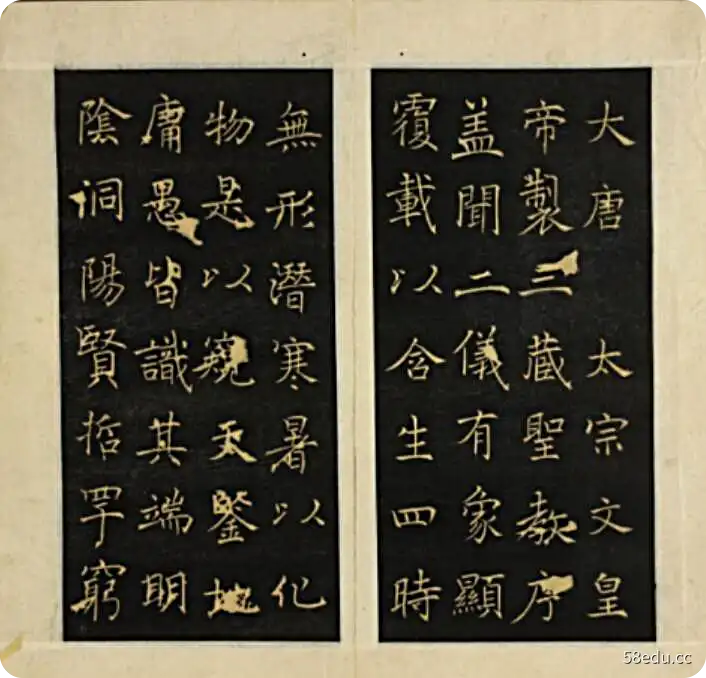 大唐太宗文皇
帝製三藏聖教序
盖聞二儀有象顯
覆載以含生四時
無形潛寒暑以化
物是以窺天鑒地
庸愚皆識其端明
陰洞陽賢哲罕窮
58edu.cc